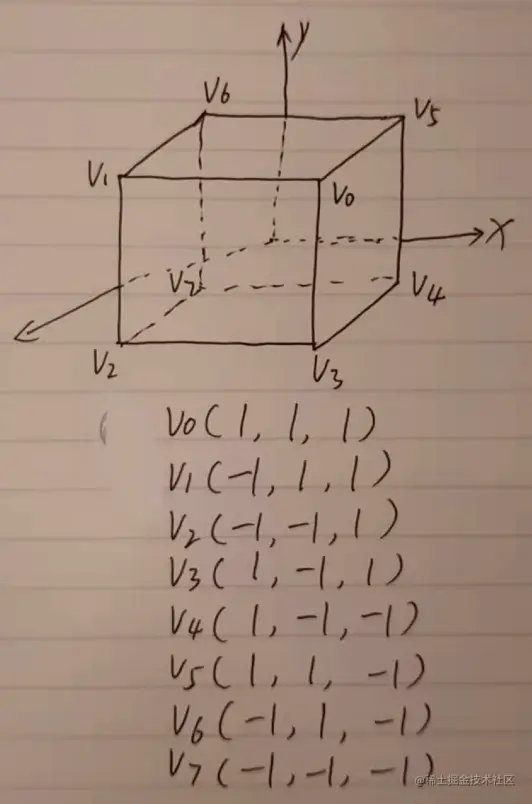 y
V6
V5
V1
V0
X
V7
V4
V2
V3
V0(1, 1, 1)
V1(-1, 1, 1)
V2(-1, -1, 1)
V3(1, -1, 1)
V4(1, -1, -1)
V5(1, 1, -1)
V6(-1, 1, -1)
V7(-1, -1, -1)
@稀土掘金技术社区